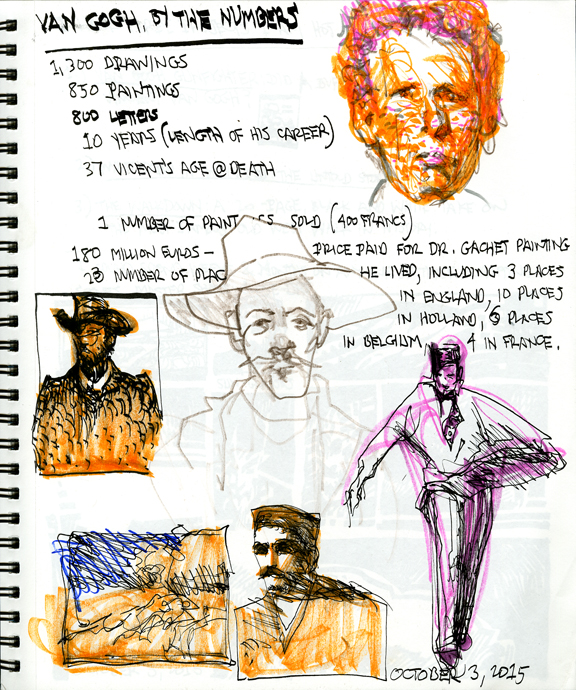 VAN GOGH, BY THE NUMBERS
1,300 DRAWINGS
850 PAINTINGS
800 LETTERS
10 YEARS (LENGTH OF HIS CAREER)
37 VICENT'S AGE @ DEATH
1 NUMBER OF PAINT GS SOLD (400 FRANCS)
180 MILLION EUROS - PRICE PAID FOR DR. GACHET PAINTING
23 NUMBER OF PLAC HE LIVED, INCLUDING 3 PLACES
IN ENGLAND, 10 PLACES
IN HOLLAND, 6 PLACES
IN BELGIUM 4 IN FRANCE.
OCTOBER 3, 2015